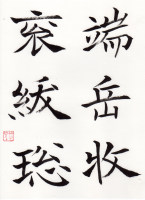 端岳收
衮紱聡